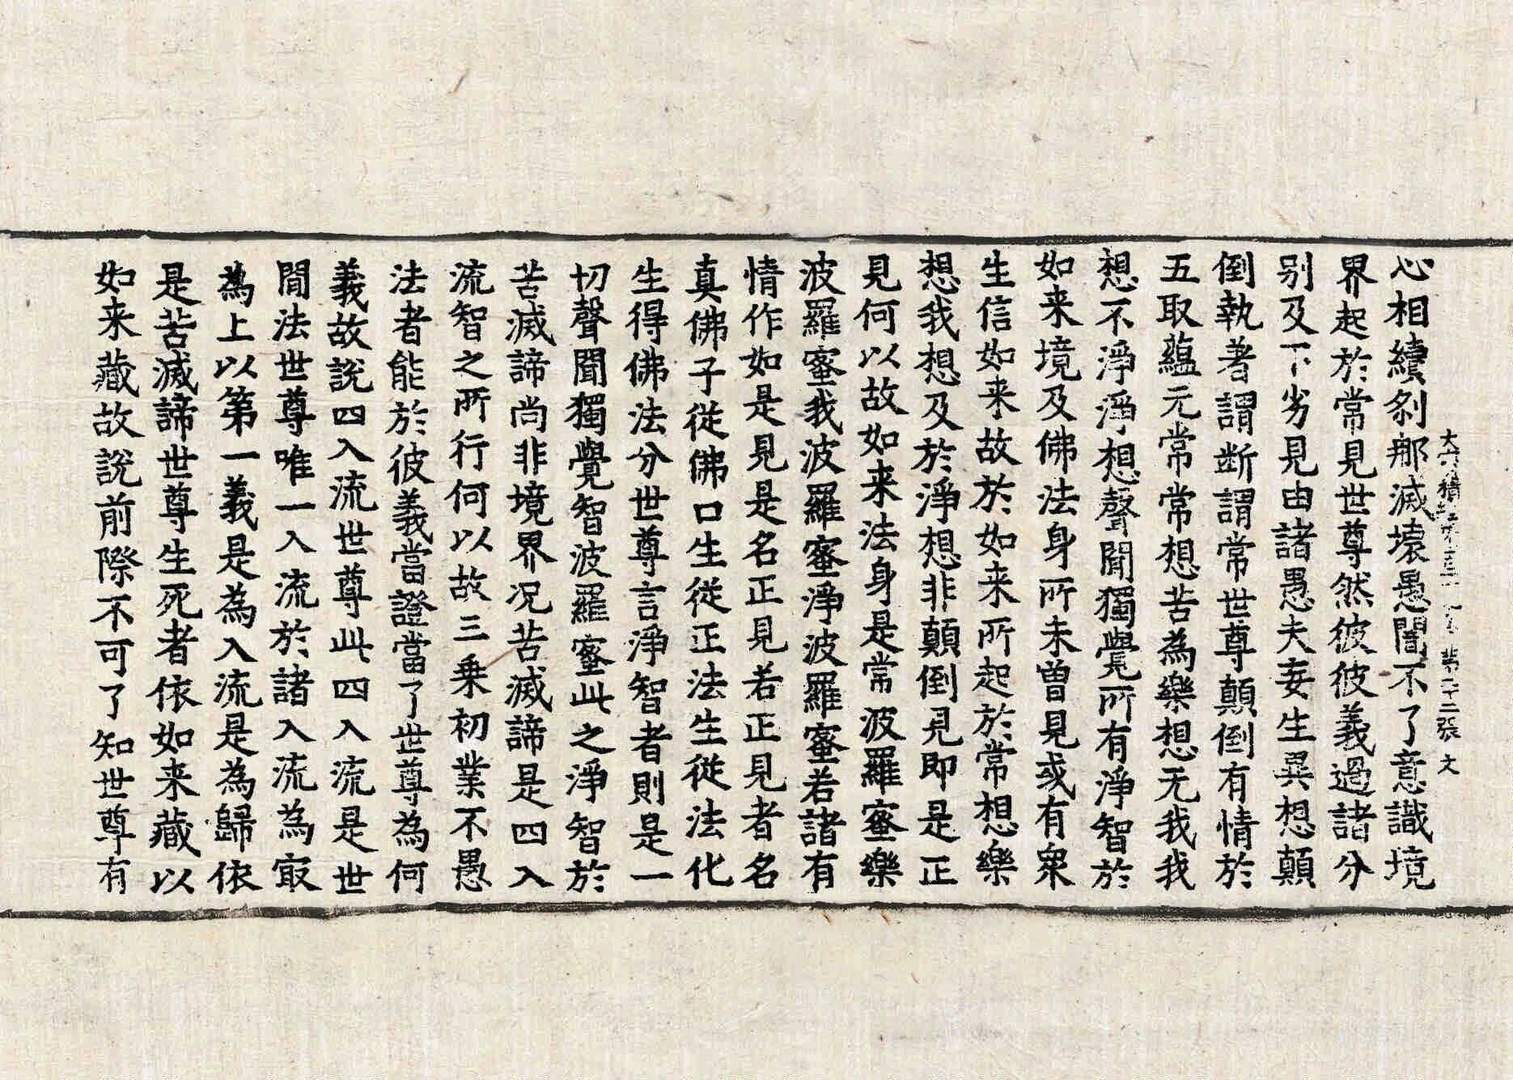 大 積 第二十二張 文
心相續刹那滅壞愚闇不了意識境
界起於常見世尊然彼彼義過諸分
別及下劣見由諸愚夫妄生異想顛
倒執著謂断謂常世尊顛倒有情於
五取蘊元常常想苦為樂想无我我
想不淨淨想聲聞獨覺所有淨智於
如来境及佛法身所未曾見或有衆
生信如来故於如来所起於常想樂
想我想及於淨想非顛倒見即是正
見何以故如来法身是常波羅蜜樂
波羅蜜我波羅蜜淨波羅蜜若諸有
情作如是見是名正見若正見者名
真佛子從佛口生從正法生從法化
生得佛法分世尊言淨智者則是一
切聲聞獨覺智波羅蜜此之淨智於
苦滅諦尚非境界况苦滅諦是四入
流智之所行何以故三乗初業不愚
法者能於彼義當證當了世尊為何
義故說四入流世尊此四入流是世
間法世尊唯一入流於諸入流為㝡
為上以第一義是為入流是為歸依
是苦滅諦世尊生死者依如来藏以
如来藏故說前際不可了知世尊有